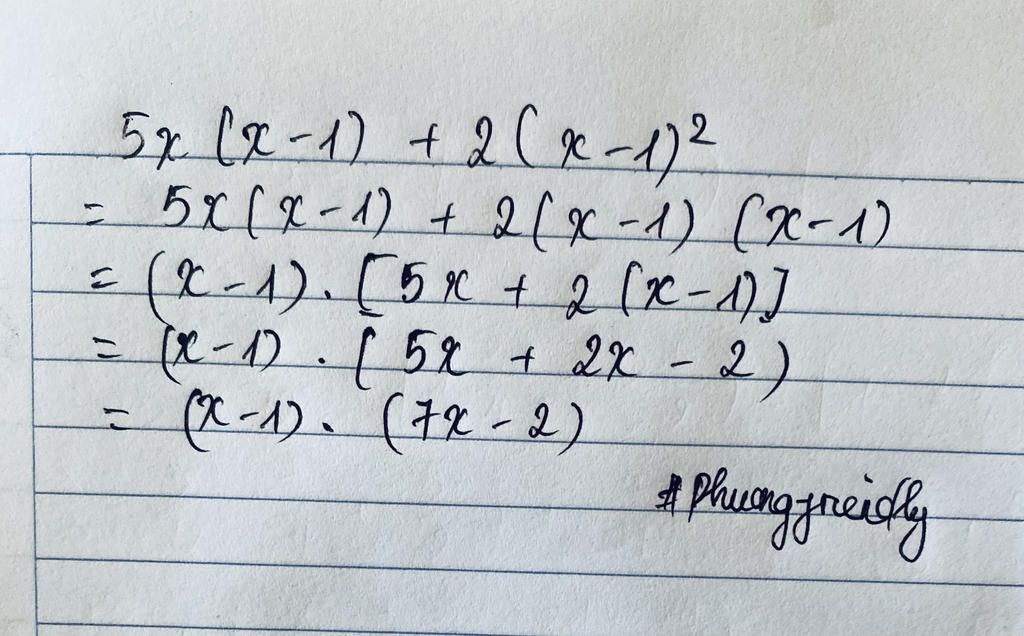 5x (x-1) + 2(x-1)²
= 5x(x-1) + 2(x-1) (x-1)
= (x-1). [5x + 2(x-1)]
= (x-1) . [5x + 2x - 2)
= (x-1). (7x - 2)